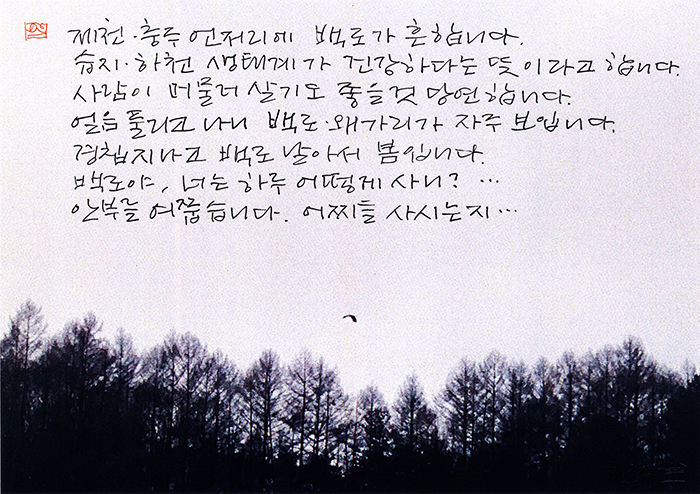 제천·충주 언저리에 백로가 흔합니다.
습지·하천 생태계가 건강하다는 뜻이라고 합니다.
사람이 머물러 살기도 좋을것 당연합니다.
얼음 풀리고 나니 백로·왜가리가 자주 보입니다.
경칩지나고 백로 날아서 봄입니다.
백로야, 너는 하루 어떻게 사니? …
안부를 여쭙습니다. 어찌들 사시는지…